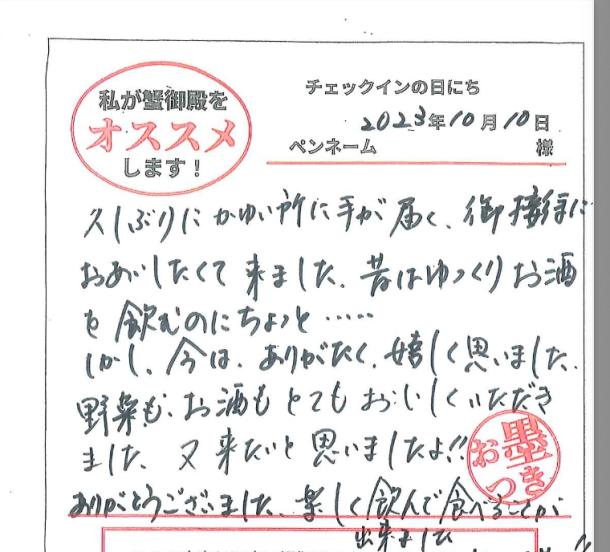 私が蟹御殿を
オススメ
します！
チェックインの日にち
2023年10月10日
ペンネーム 様
久しぶりにかゆい所に手が届く、御接待に
おあいしたくて来ました、昔はゆっくりお酒
を飲むのにちょっと……
しかし、今は、ありがたく、嬉しく思いました、
野菜も、お酒もとてもおいしくいただき
ました、又来たいと思いましたよ!!
お墨つき
ありがとうございました、楽しく飲んで食べることが
出来ました